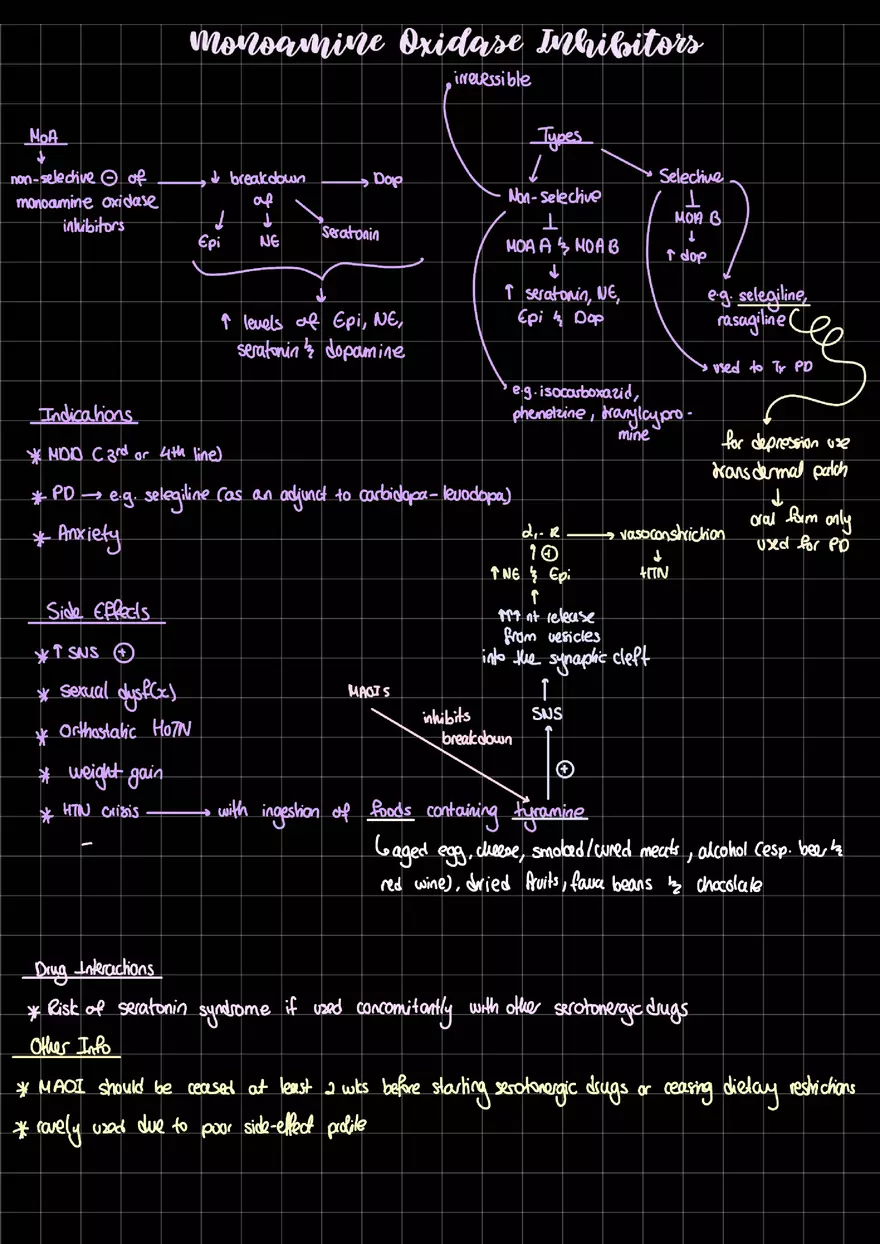 Monoamine Oxidase Inhibitors
irreversible
MoA
non-selective ⊖ of
monoamine oxidase
inhibitors
↓ breakdown
of
Dop
Epi
NE
Seratonin
↑ levels of Epi, NE,
seratonin & dopamine
Types
Non-selective
MOA A & MOA B
↑ seratonin, NE,
Epi & Dop
e.g. isocarboxazid,
phenelzine, tranylcypro-
mine
Selective
MOA B
↑ dop
e.g. selegiline,
rasagiline
used to Tx PD
for depression use
transdermal patch
oral form only
used for PD
Indications
* MDD (3rd or 4th line)
* PD → e.g. selegiline (as an adjunct to carbidopa-levodopa)
* Anxiety
Side Effects
* ↑ SNS ⊕
* sexual dysf(x)
* Orthostatic HoTN
* weight gain
* HTN crisis → with ingestion of foods containing tyramine
↳ aged egg, cheese, smoked/cured meats, alcohol (esp. beer &
red wine), dried fruits, fava beans & chocolate
α₁-R → vasoconstriction
↑ ⊕
HTN
↑ NE & Epi
↑↑↑ nt release
from vesicles
into the synaptic cleft
SNS
⊕
MAOIs
inhibits
breakdown
Drug Interactions
* Risk of seratonin syndrome if used concomitantly with other serotonergic drugs
Other Info
* MAOI should be ceased at least 2 wks before starting serotonergic drugs or ceasing dietary restrictions
* rarely used due to poor side-effect profile